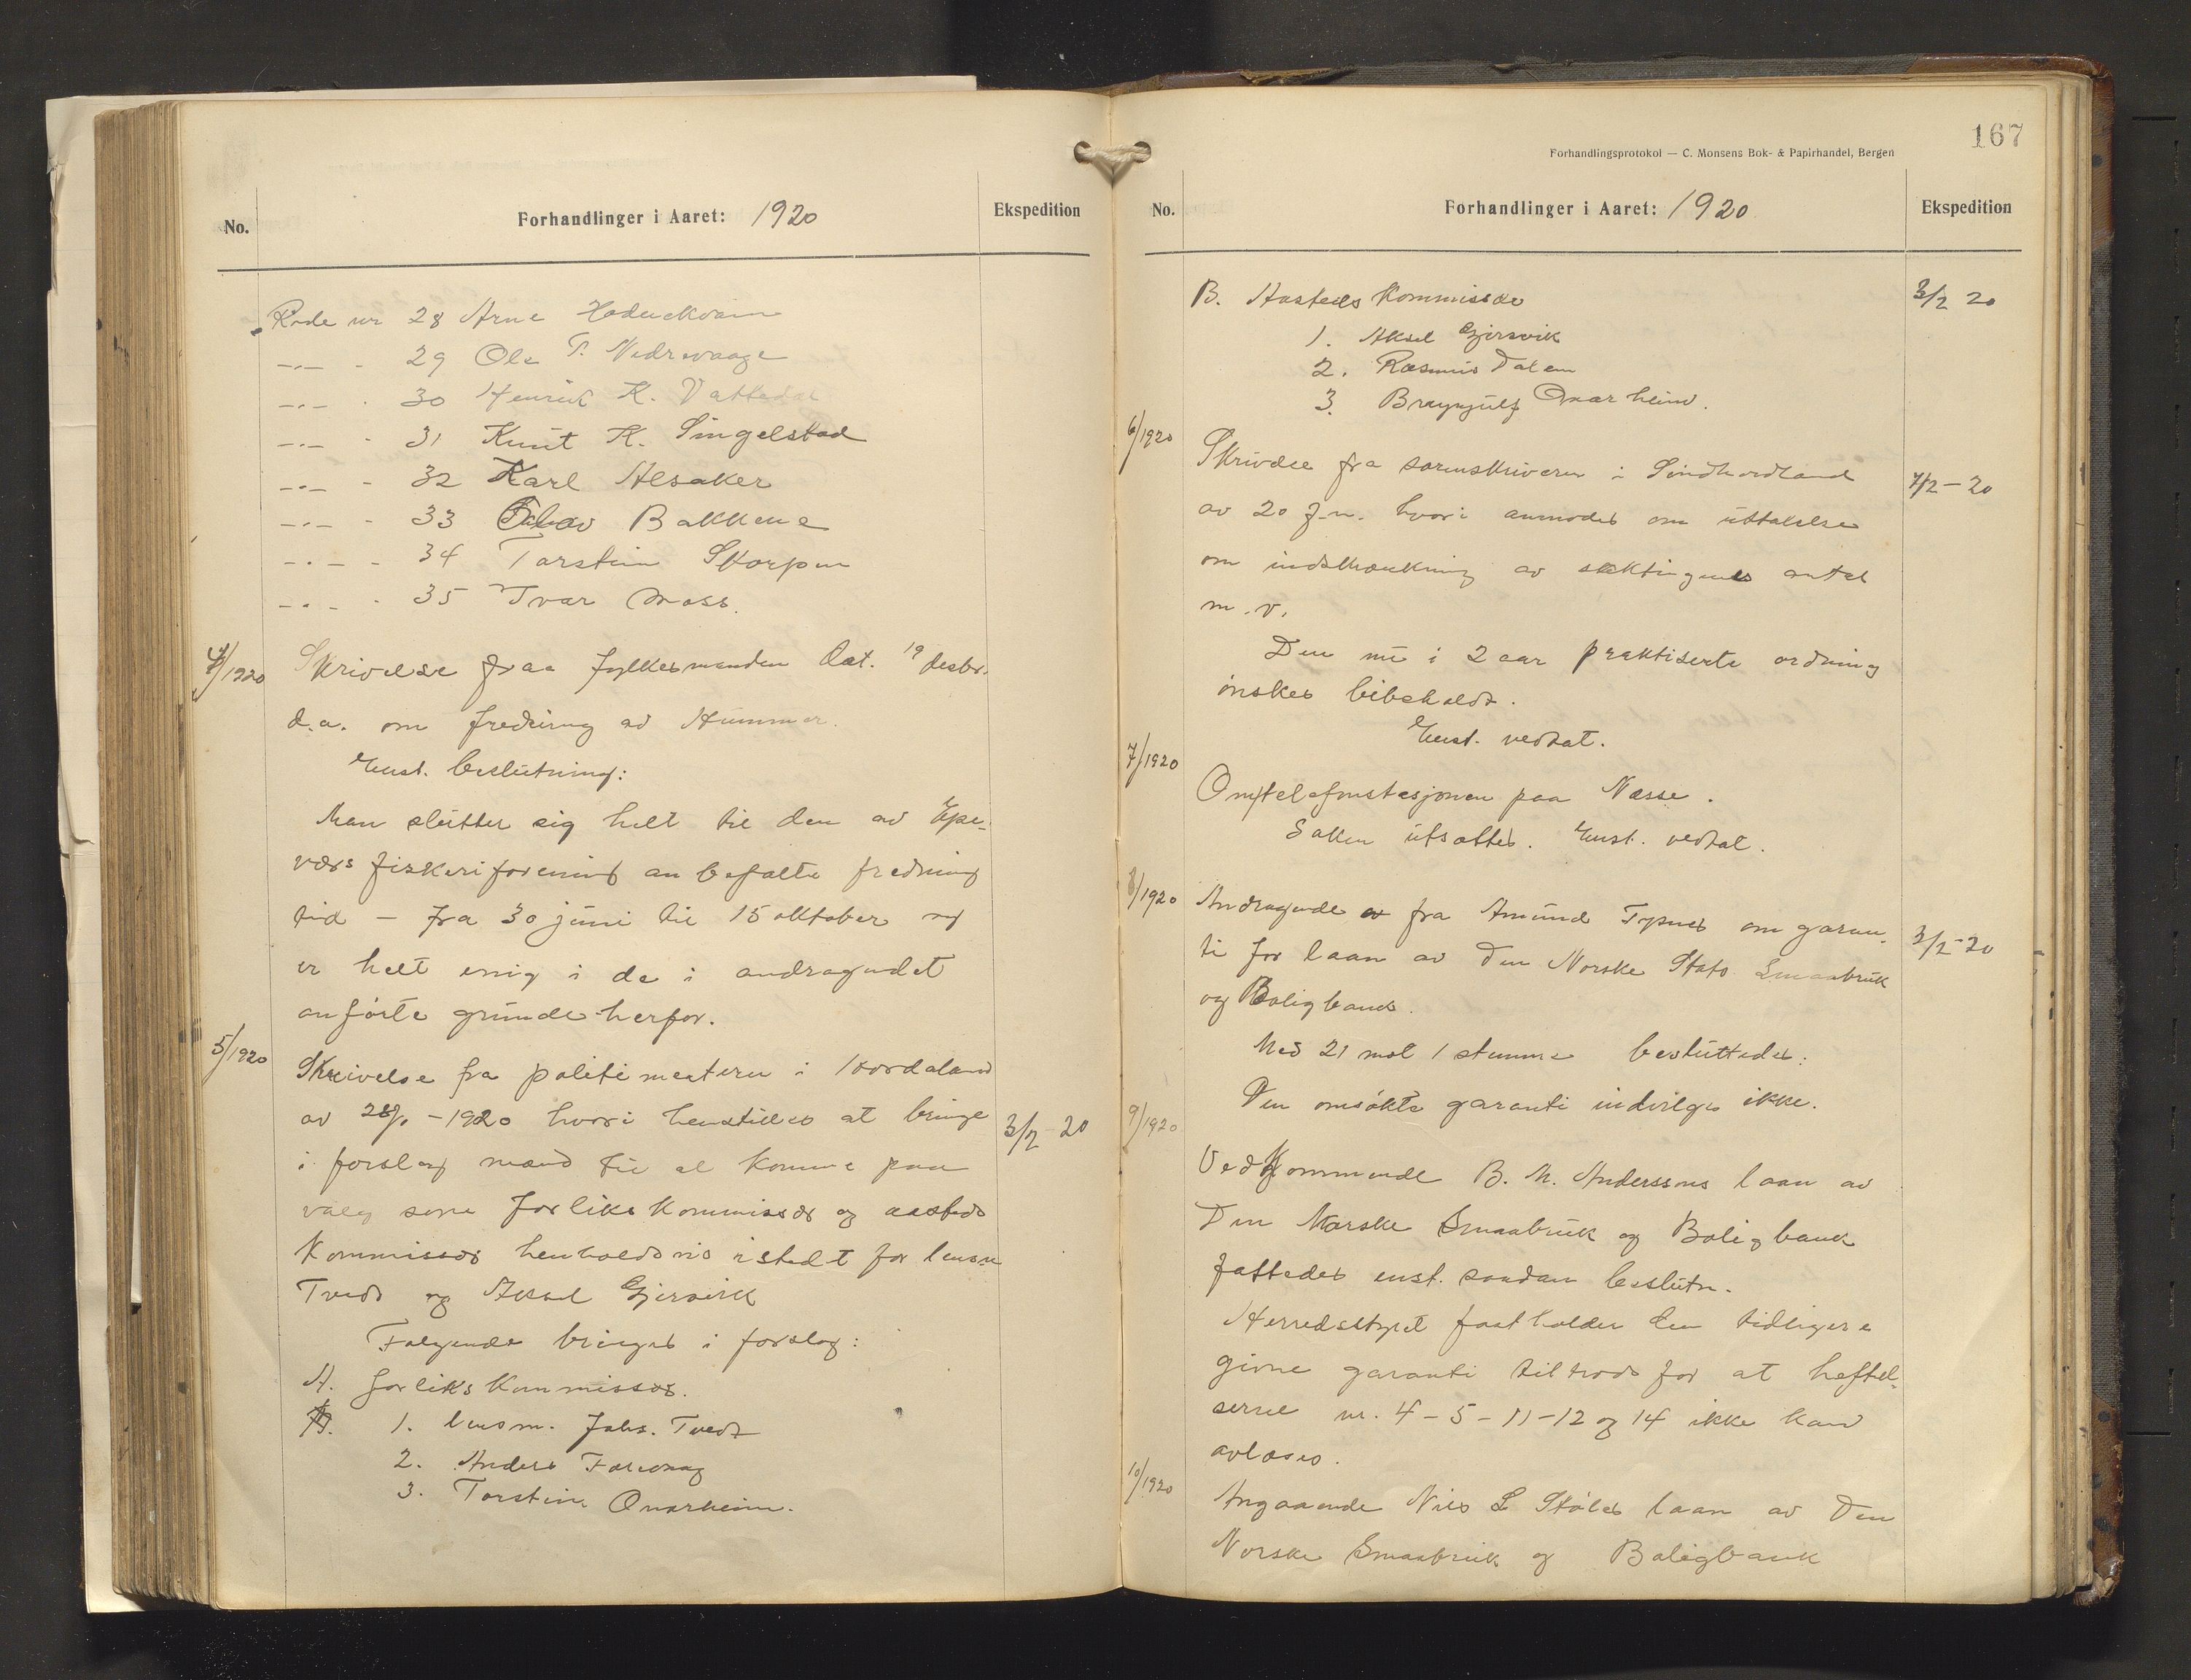 No.
Forhandlinger i Aaret: 1920
Ekspedition
Rode nr 28 Arne
-"- - 29 Ole T. Nedrevaage
-"- - 30 Henrik K. Vattedal
-"- - 31 Knut K. Singelstad
-"- - 32 Karl Alsaker
-"- - 33 Bakkene
-"- - 34 Torstein Skorpen
-"- - 35 Ivar Moss.
4/1920 Skrivelse fraa fylkesmanden dat. 19 desbr.
d.a. om fredning av Hummer.
Enst. beslutning:
Man slutter sig helt til den av Espe-
værs fiskeriforening anbefalte fredning
tid - fra 30 juni til 15 oktober og
er helt enig i de i andragendet
anførte grunde herfor.
5/1920 Skrivelse fra politimesteren i Hordaland
av 28/1 - 1920 hvori henstilles at bringe 3/2 20
i forslag mænd til at komme paa
valg som forlikskommissær og aasteds
kommissær henholdsvis istedt for lensm
Tvedt og Aksel Gjersvik
Følgende bringes i forslag:
A. forlikskommissær.
B. 1. lensm. Johs. Tvedt
2. Anders Færevaag
3. Torstein Onarheim.
167
Forhandlingsprotokol — C. Monsens Bok- & Papirhandel, Bergen
No.
Forhandlinger i Aaret: 1920
Ekspedition
B. Aasteds Kommissær 3/2 20
1. Aksel Gjersvik
2. Rasmus Dalen
3. Brynjulf Onarheim.
6/1920
Skrivelse fra sorenskriveren i Sundhordland 7/2 - 20
av 20 f.m. hvori anmodes om uttalelse
om indskrænkning av sektingenes antal
m.v.
Den nu i 2 aar praktiserte ordning
ønskes bibeholdt.
Enst. vedtat.
7/1920
Om telefonstasjonen paa Næsse.
Saken utsættes. Enst. vedtat.
8/1920 Andragende fra Amund Typnes om garan-
ti for laan av Den Norske Stats Smaabruk 3/2-20
og Boligbank.
Med 21 mot 1 stemme besluttedes:
Den omsøkte garanti indvilges ikke.
9/1920
Vedkommende B. M. Anderssons laan av
Den Norske Smaabruk og Boligbank
fattedes enst. saadan beslutn.
Herredsstyret fastholder den tidligere
givne garanti tiltrods for at heftel-
serne nr. 4 - 5 - 11 - 12 og 14 ikke kan
avløses.
10/1920
Angaaende Nils L Støles laan av Den
Norske Smaabruk og Boligbank